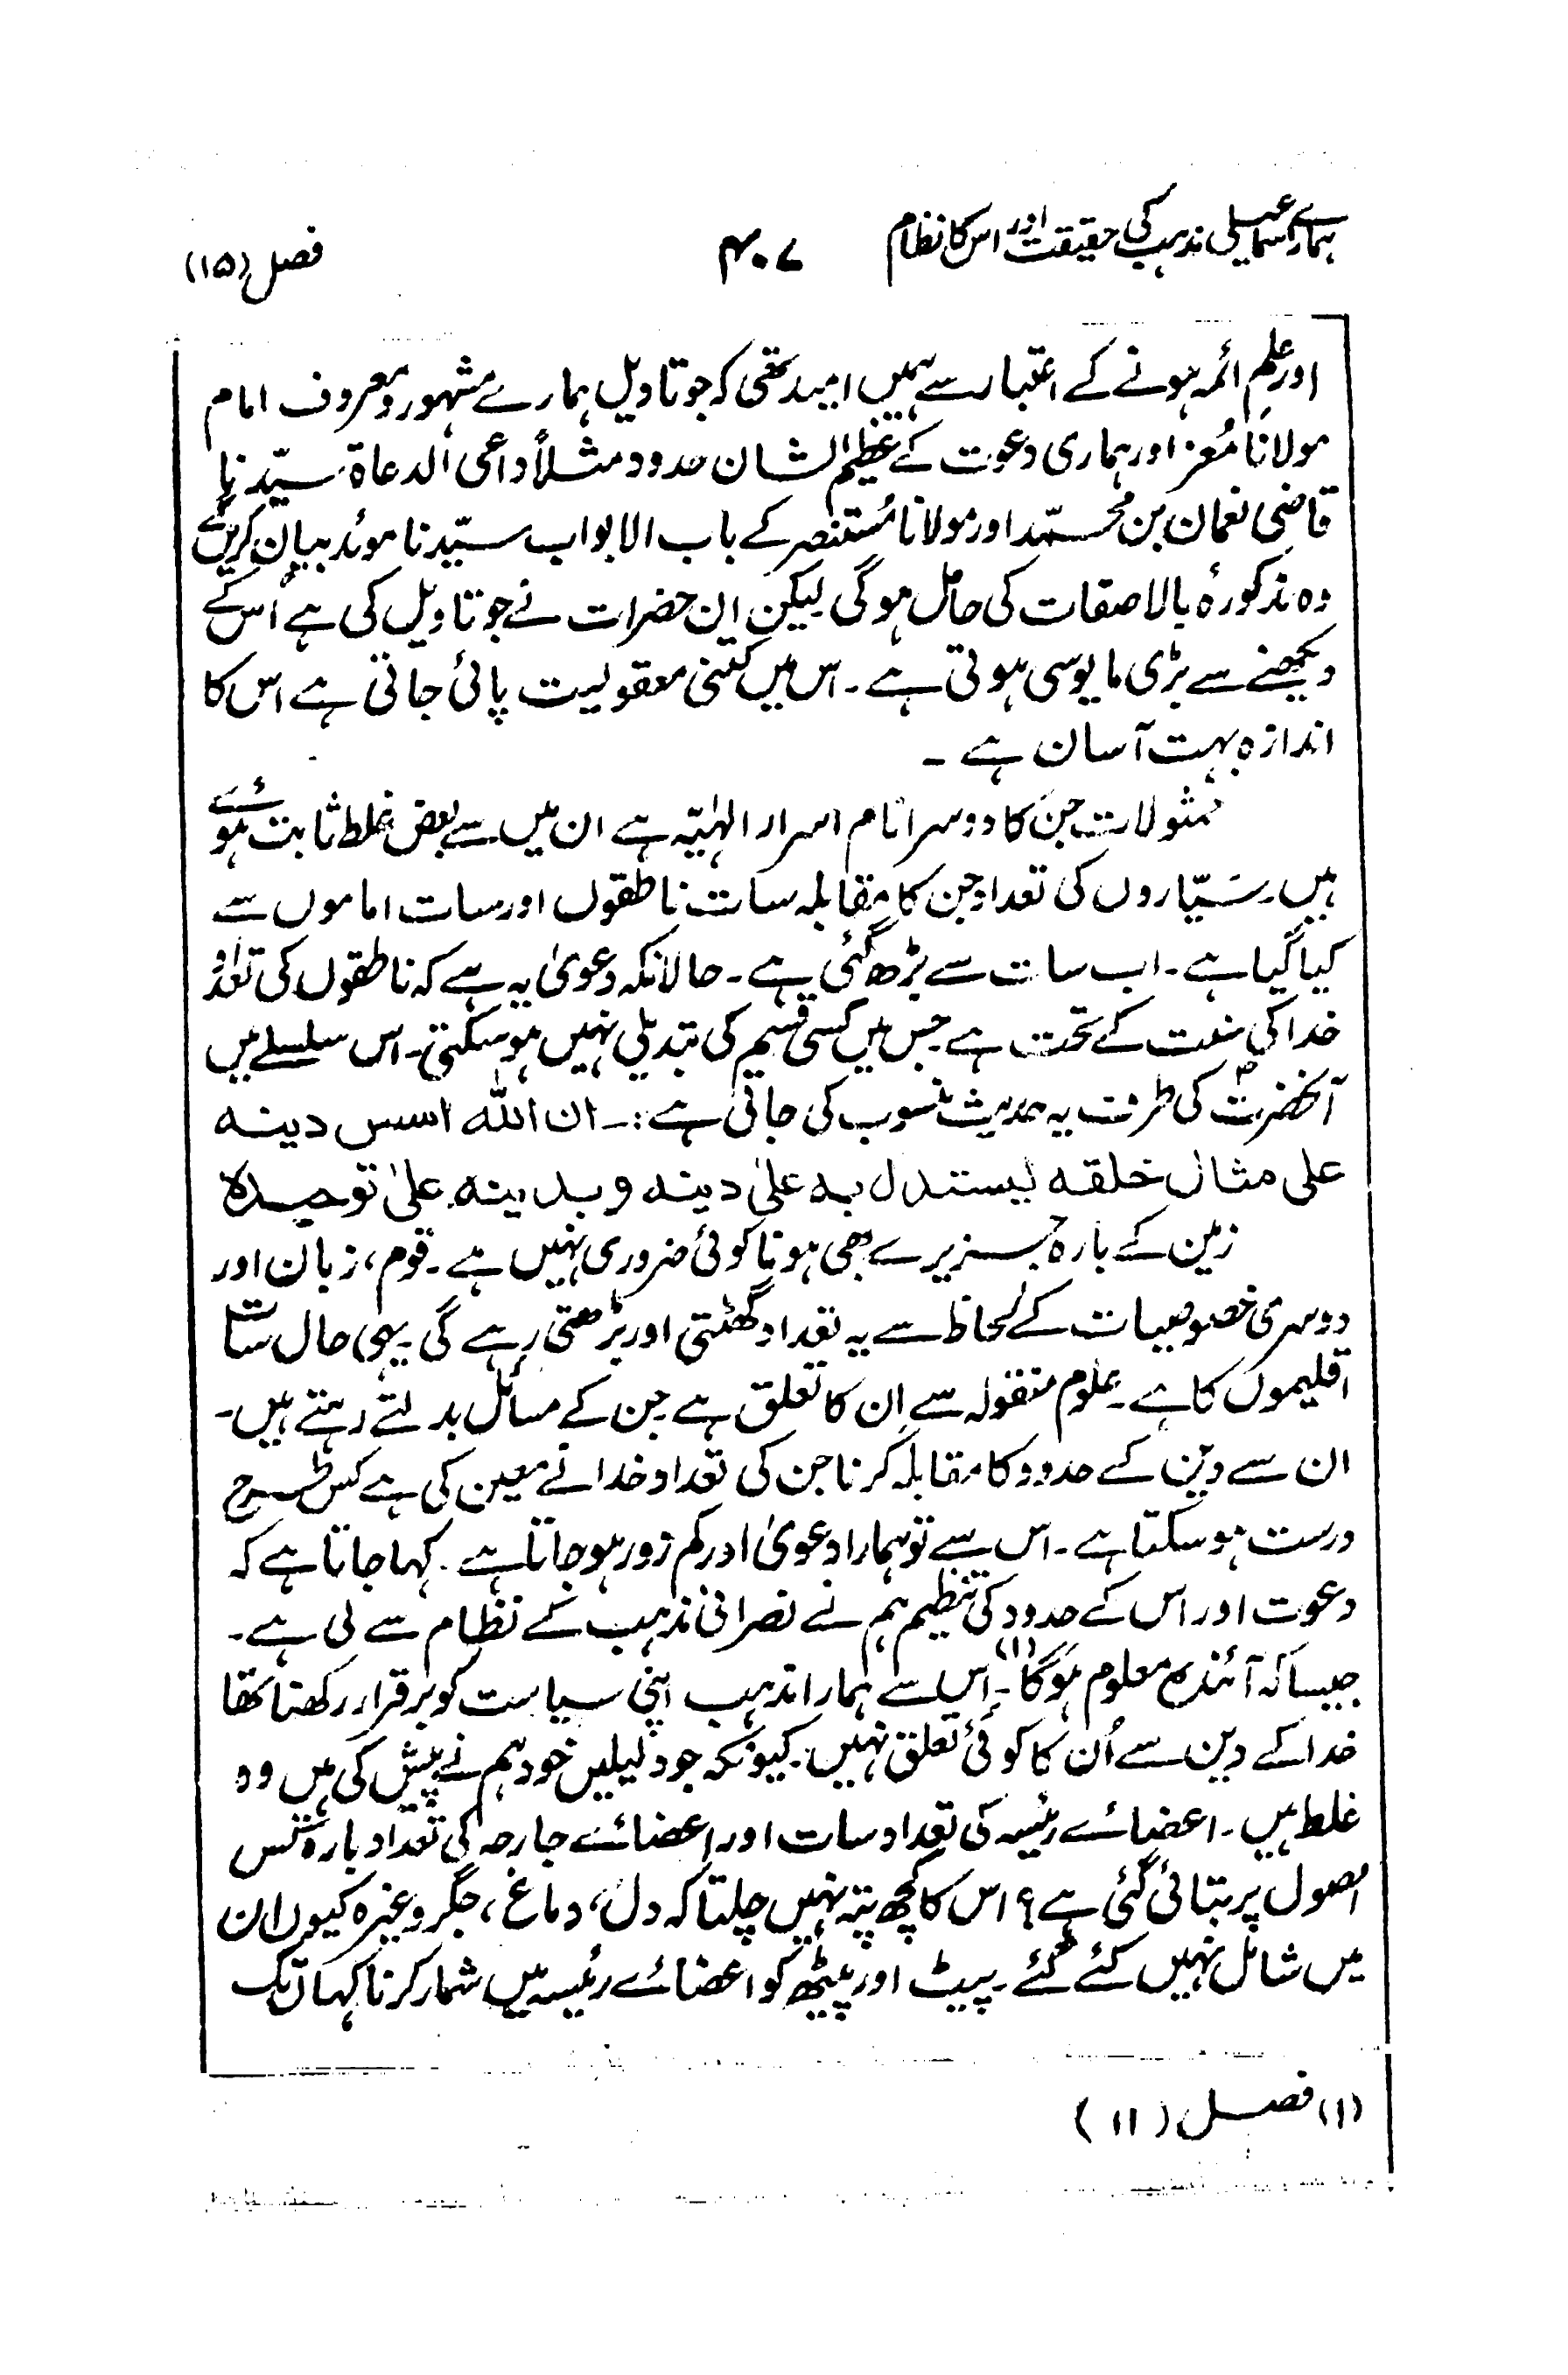 ہمارے اسماعیلی مذہب کی حقیقت اور اس کا نظام ۴۰۷ فصل (۱۵)
اور علمِ ائمہ ہونے کے اعتبار سے ہمیں امید تھی کہ جو تاویل ہمارے مشہور و معروف امام
مولانا مُعز اور ہماری دعوت کے عظیم الشان حدود مثلاً داعی الدعاۃ سیّدنا
قاضی نعمان بن محمّد اور مولانا مُستنصر کے باب الابواب سیّدنا موئد بیان کریں گے
وہ مذکورۂ بالا صفات کی حامل ہوگی لیکن ان حضرات نے جو تاویل کی ہے اُس کے
دیکھنے سے بڑی مایوسی ہوتی ہے ۔ اس میں کتنی معقولیت پائی جاتی ہے اس کا
اندازہ بہت آسان ہے ۔
ممثولات جن کا دوسرا نام اسرار الہٰیّہ ہے ان میں سے بعض غلط ثابت ہوئے
ہیں۔ سَیّاروں کی تعداد جن کا مقابلہ سات ناطقوں اور سات اماموں سے
کیا گیا ہے ۔ اب سات سے بڑھ گئی ہے ۔ حالانکہ دعویٰ یہ ہے کہ ناطقوں کی تعداد
خدا کی سنت کے تحت ہے جس میں کسی قسم کی تبدیلی نہیں ہو سکتی۔ اس سلسلے میں
آنحضرتؐ کی طرف یہ حدیث منسوب کی جاتی ہے :۔ ان اللّٰہ اسس دینہ
علی مثال خلقہ لیستدل بہ علیٰ دینہ و بدینہ علیٰ توحیدہ
زمین کے بارہ جزیرے بھی ہونا کوئی ضروری نہیں ہے ۔ قوم، زبان اور
دوسری خصوصیات کے لحاظ سے یہ تعداد گھٹتی اور بڑھتی رہے گی ۔ یہی حال سات
اقلیموں کا ہے ۔ علوم منقولہ سے اِن کا تعلق ہے جن کے مسائل بدلتے رہتے ہیں۔
ان سے دین کے حدود کا مقابلہ کرنا جن کی تعداد خدا نے معین کی ہے کس طرح
درست ہو سکتا ہے ۔ اس سے تو ہمارا دعویٰ اور کم زور ہو جاتا ہے ۔ کہا جاتا ہے کہ
دعوت اور اس کے حدود کی تنظیم ہم نے نصرانی مذہب کے نظام سے لی ہے ۔
جیسا کہ آئندہ معلوم ہوگا (۱)۔ اس سے ہمارا مذہب اپنی سیاست کو برقرار رکھنا تھا
خدا کے دین سے اُن کا کوئی تعلق نہیں ۔ کیونکہ جو دلیلیں خود ہم نے پیش کی ہیں وہ
غلط ہیں ۔ اعضائے رئیسہ کی تعداد سات اور اعضائے جارحہ کی تعداد بارہ کس
اصول پر بتائی گئی ہے ؟ اس کا کچھ پتہ نہیں چلتا کہ دل، دماغ، جگر وغیرہ کیوں ان
میں شامل نہیں کئے گئے ۔ پیٹ اور پیٹھ کو اعضائے رئیسہ میں شمار کرنا کہاں تک
(۱) فصل (۱۱)